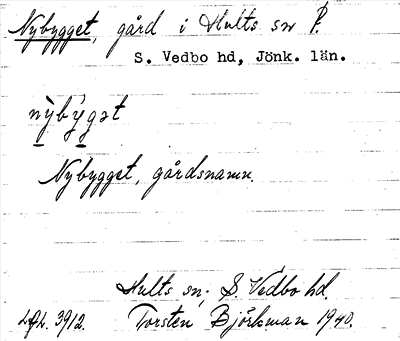 Nybygget, gård i Hults sn P.
S. Vedbo hd, Jönk. län.
nỳbýgət
Nybygget, gårdsnamn.
Hults sn, S. Vedbo hd.
3912. Torsten Björkman 1940.